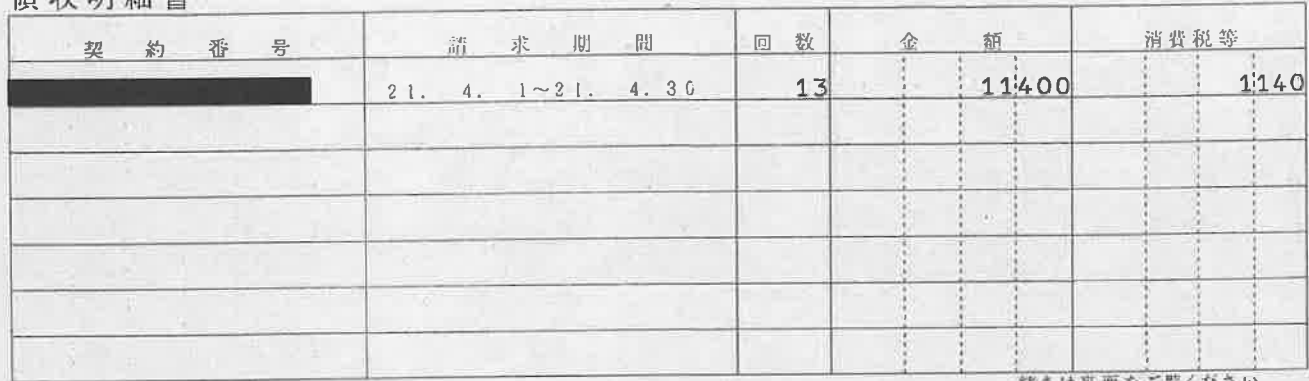 領収明細書
契約番号 請求期間 回数 金額 消費税等
21. 4. 1~21. 4.30 13 11400 1140
続きは裏面をご覧ください